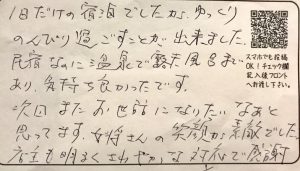 1日だけの宿泊でしたが、ゆっくり
のんびり過ごすことが出来ました。
民宿なのに温泉で露天風呂まで
あり、気持ち良かったです。
次回またお世話になりたいなあと
思ってます。女将さんの笑顔が素敵でした。
店主も明るくさわやかな対応で感謝
スマホでも投稿
OK!チェック欄
記入後フロント
へお渡し下さい。